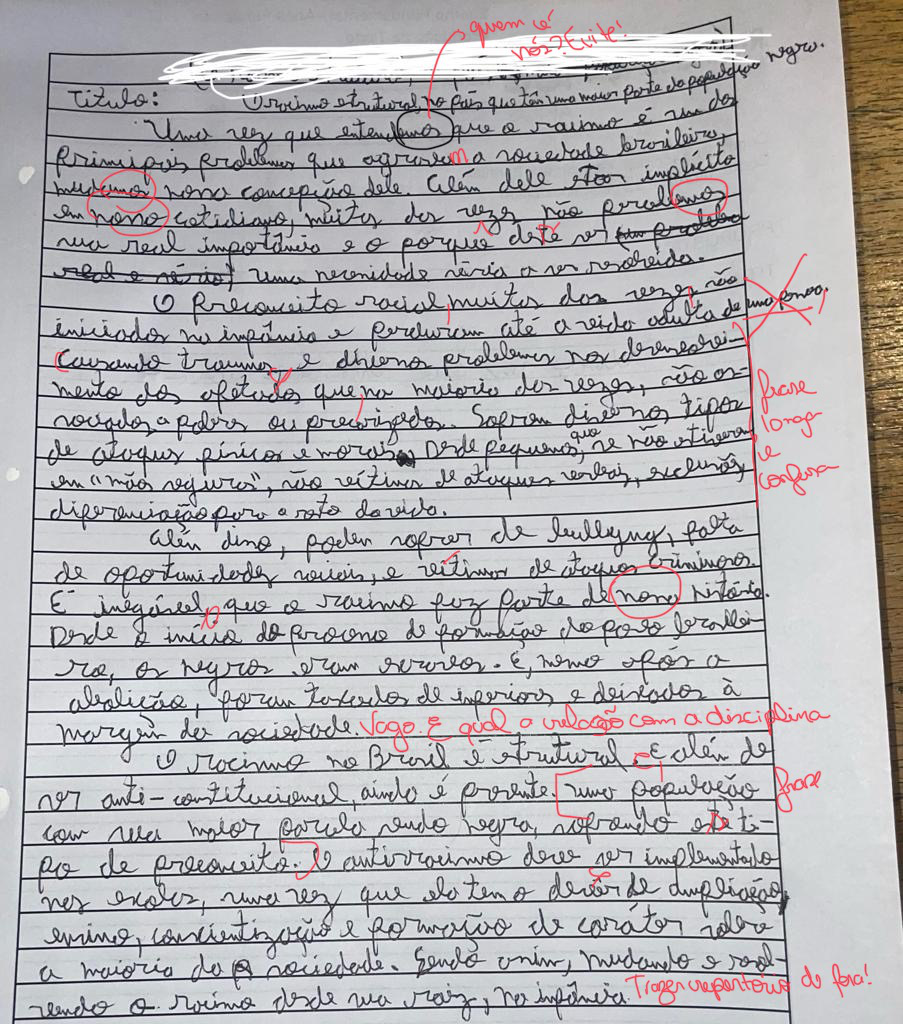 quem é
nós? Evite!
Título: O racismo estrutural, no país que têm uma maior parte da população negra.
Uma vez que entendemos que o racismo é um dos
principais problemas que agridem a sociedade brasileira,
mudamos nossa concepção dele. Além dele estar implícito
em nosso cotidiano, muitas das vezes não percebemos
sua real importância e o porque deste ser
uma necessidade séria a ser resolvida.
O Preconceito racial, muitas das vezes, são
iniciados na infância e perduram até a vida adulta de uma pessoa,
Causando traumas e diversos problemas nos desenvolvi-
mento dos afetados que na maioria das vezes, são as-
sociados a pobres ou precarizados. Sofrem diversos tipos
de ataques físicos e morais. Desde pequenos, que se não estiverem
em "mãos seguras", são vítimas de ataques verbais, exclusão,
diferenciação para o resto da vida.
frase
longa
e
confusa
Além disso, podem sofrer de bullying, falta
de oportunidades sociais, e vítimas de ataques criminosos.
É inegável, que o racismo faz parte de nossa história.
Desde o início do processo de formação do povo brasilei-
ro, os negros eram escravos. E, mesmo após a
abolição, foram taxados de inferiores e deixados à
margem da sociedade. Vago. E qual a relação com a disciplina
O racismo no Brasil é estrutural E, além de
ser anti-constitucional, ainda é presente. uma população frase
com sua maior parcela sendo negra, sofrendo este ti-
po de preconceito. O antirracismo deve ser implementado
nas escolas, uma vez que ela tem o dever de ampliação,
ensino, conscientização e formação de caráter sobre
a maioria da sociedade. Sendo assim, mudando e resol-
vendo o racismo desde sua raiz, na infância. Trazer repertório de fora!